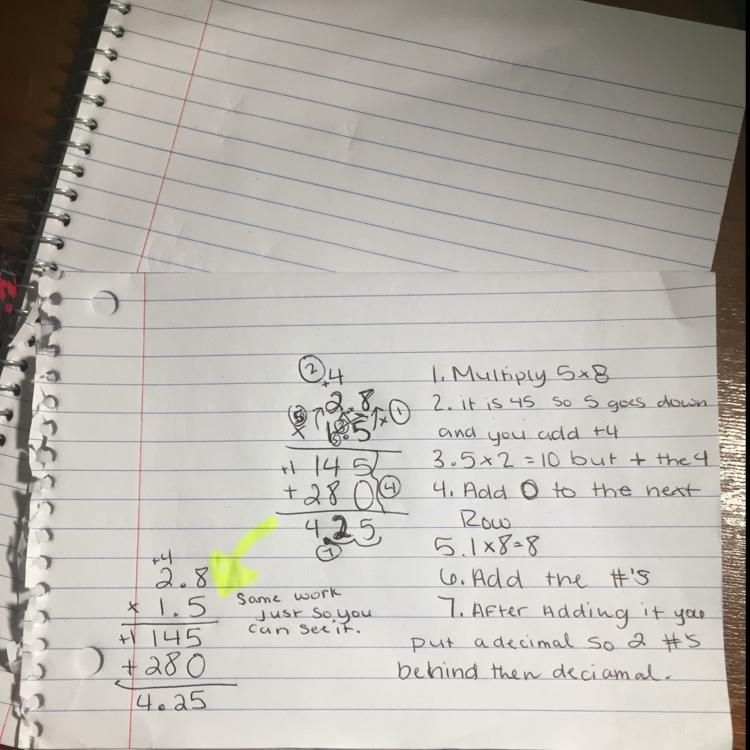 ② +4
2.8 ①
⑤ x 1.5
+1 145
+ 280 ④
4.25
⑦
1. Multiply 5x8
2. it is 45 so 5 goes down
and you add +4
3. 5x2 = 10 but + the 4
4. Add 0 to the next
Row
5. 1x8=8
6. Add the #'s
7. After Adding it you
put a decimal so 2 #s
behind then deciamal.
+4
2.8
x 1.5
+1 145
+ 280
4.25
Same work
just so you
can see it.